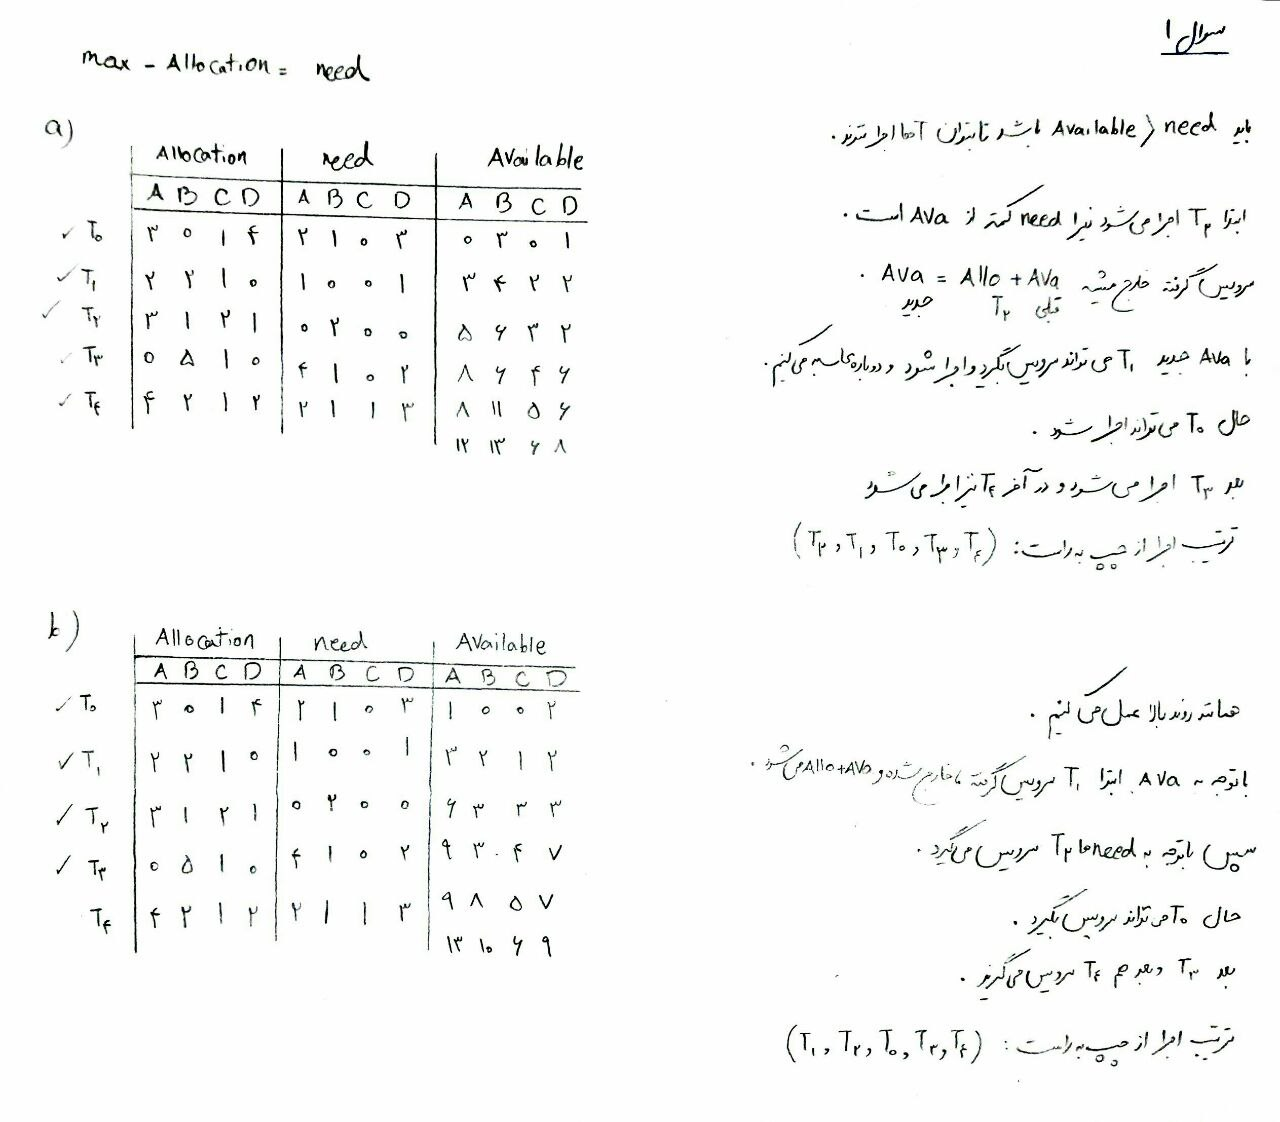 سوال ۱
max - Allocation = need
باید Available > need باشد تا بتوان آنها اجرا شوند.
a)
Allocation need Available
A B C D A B C D A B C D
✓ T۰ ۳ ۰ ۱ ۴ ۲ ۱ ۰ ۳ ۰ ۳ ۰ ۱
✓ T۱ ۲ ۲ ۱ ۰ ۱ ۰ ۰ ۱ ۳ ۴ ۲ ۲
✓ T۲ ۳ ۱ ۲ ۱ ۰ ۲ ۰ ۰ ۵ ۶ ۳ ۲
✓ T۳ ۰ ۵ ۱ ۰ ۴ ۱ ۰ ۲ ۸ ۶ ۴ ۶
✓ T۴ ۴ ۲ ۱ ۲ ۲ ۱ ۱ ۳ ۸ ۱۱ ۵ ۶
۱۲ ۱۳ ۶ ۸
ابتدا T۲ اجرا می‌شود زیرا need کمتر از AVa است.
سرویس گرفته خارج میشه AVa = Allo + AVa.
جدید T۲ قبلی
با AVa جدید T۱ می تواند سرویس بگیرد و اجرا شود و دوباره محاسبه می‌کنیم.
حال T۰ می تواند اجرا شود.
بعد T۳ اجرا می شود و در آخر T۴ نیز اجرا می شود
ترتیب اجرا از چپ به راست: (T۲, T۱, T۰, T۳, T۴)
b)
Allocation need Available
A B C D A B C D A B C D
✓ T۰ ۳ ۰ ۱ ۴ ۲ ۱ ۰ ۳ ۱ ۰ ۰ ۲
✓ T۱ ۲ ۲ ۱ ۰ ۱ ۰ ۰ ۱ ۳ ۲ ۱ ۲
✓ T۲ ۳ ۱ ۲ ۱ ۰ ۲ ۰ ۰ ۶ ۳ ۳ ۳
✓ T۳ ۰ ۵ ۱ ۰ ۴ ۱ ۰ ۲ ۹ ۳ ۴ ۷
T۴ ۴ ۲ ۱ ۲ ۲ ۱ ۱ ۳ ۹ ۸ ۵ ۷
۱۳ ۱۰ ۶ ۹
همانند روند بالا عمل می کنیم.
با توجه به AVa ابتدا T۱ سرویس گرفته خارج شده و Allo+AVa می شود.
سپس با توجه به need ها T۲ سرویس می‌گیرد.
حال T۰ می تواند سرویس بگیرد.
بعد T۳ و بعد هم T۴ سرویس می گیرند.
ترتیب اجرا از چپ به راست: (T۱, T۲, T۰, T۳, T۴)